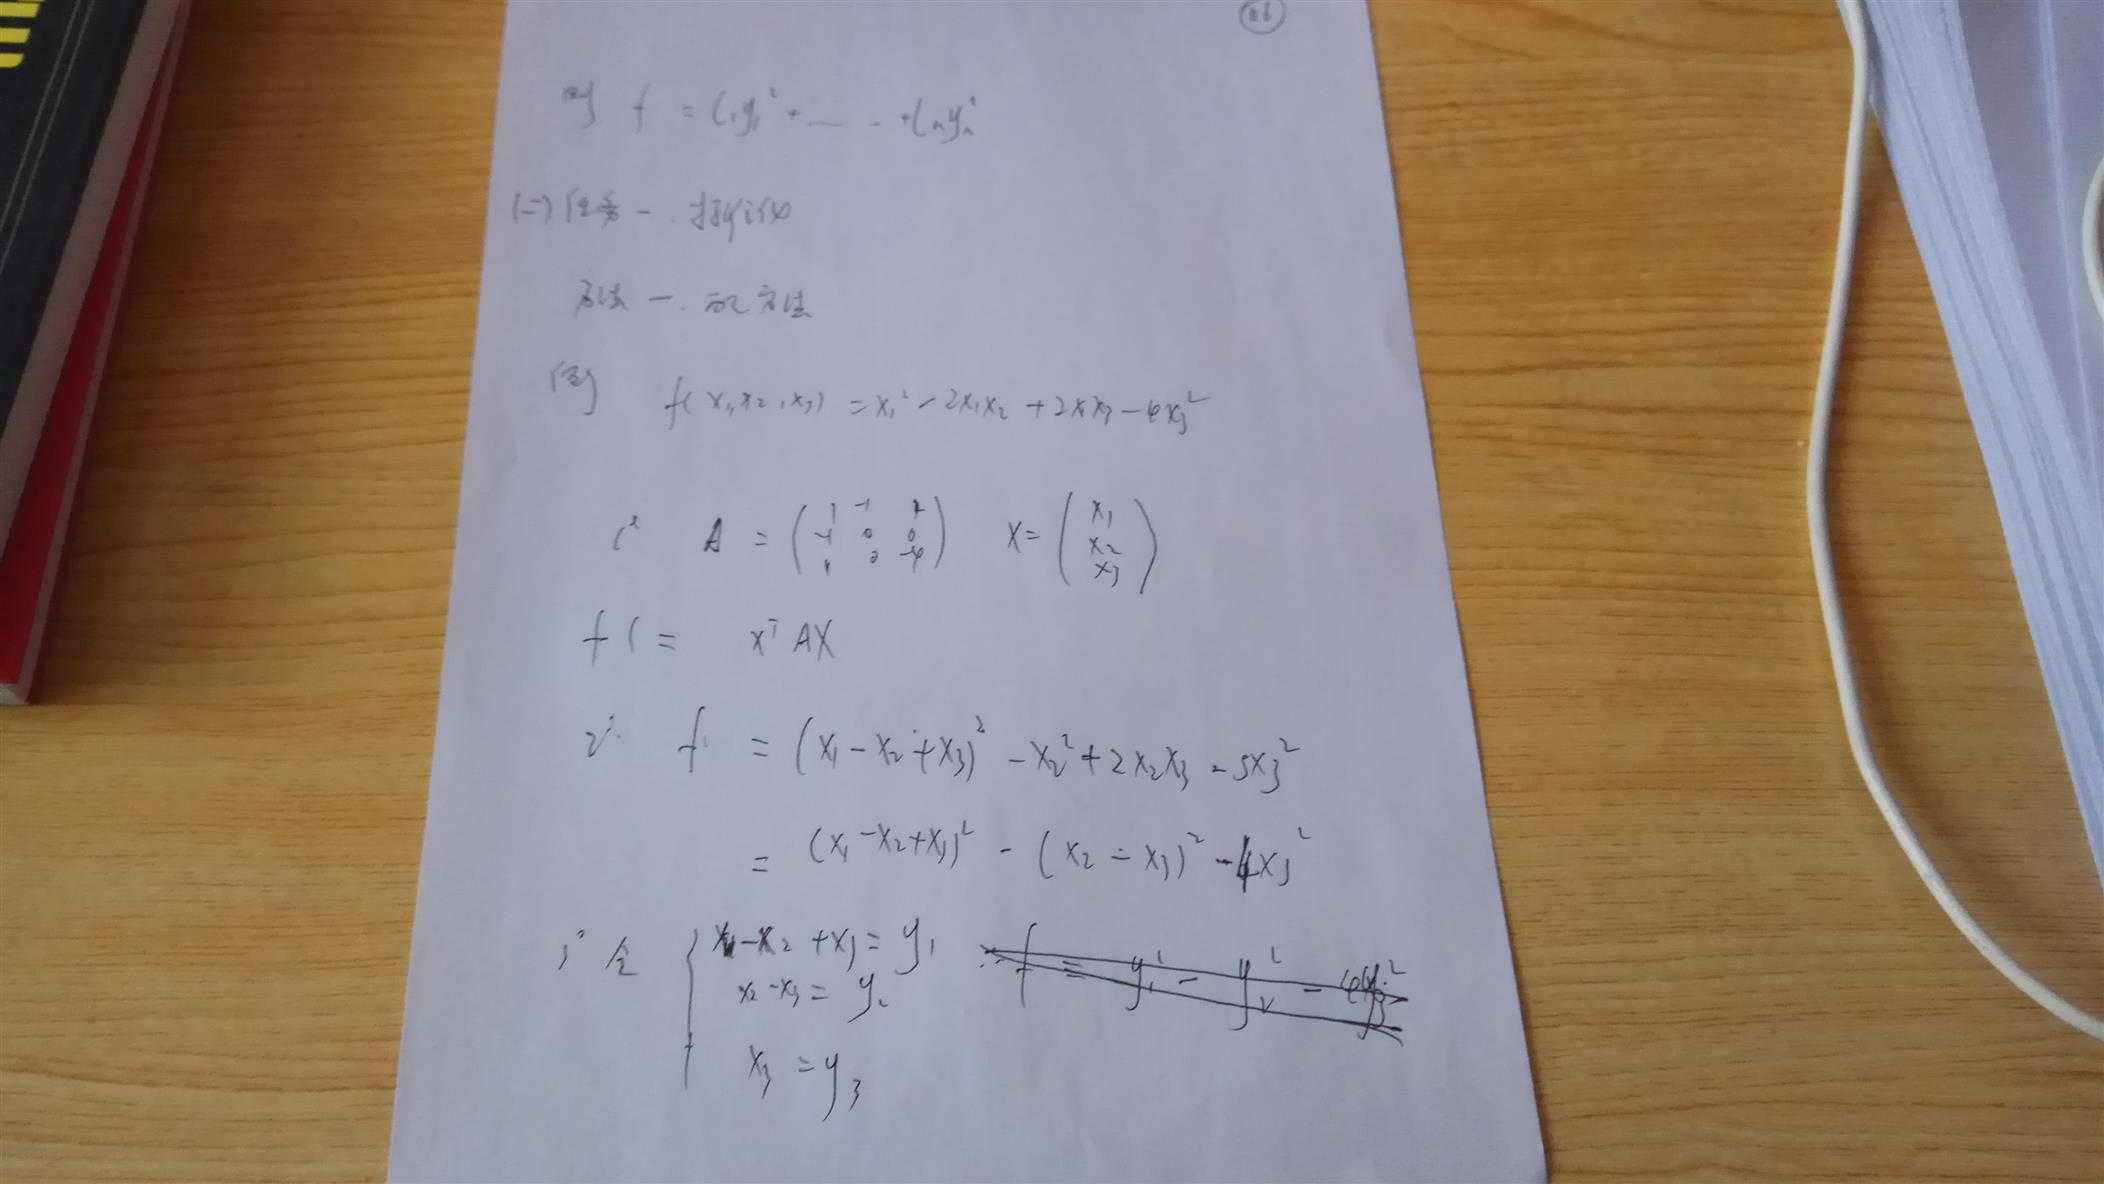 则 f = l₁y₁² + … … + lₙyₙ²
(二) 任务一. 标准化
方法一. 配方法
例 f(x₁,x₂,x₃) = x₁² - 2x₁x₂ + 2x₁x₃ - 4x₃²
1° A = (1 -1 1; -1 0 0; 1 0 -4) X = (x₁; x₂; x₃)
f( = xᵀAX
2° f = (x₁ - x₂ + x₃)² - x₂² + 2x₂x₃ - 5x₃²
= (x₁ - x₂ + x₃)² - (x₂ - x₃)² - 4x₃²
3° 令 { x₁ - x₂ + x₃ = y₁
x₂ - x₃ = y₂
x₃ = y₃